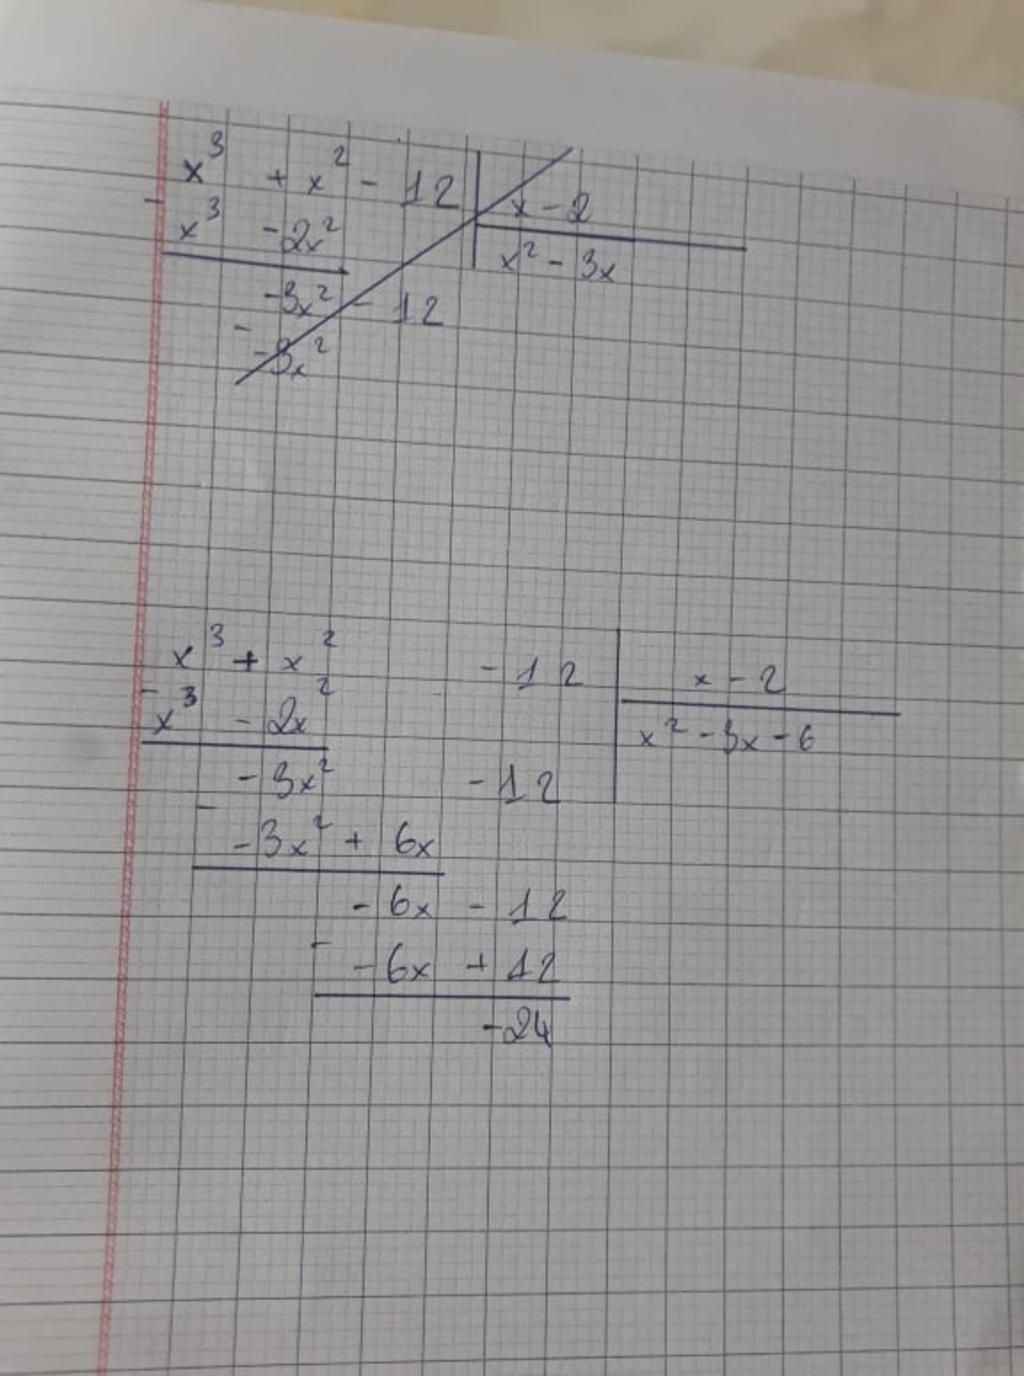 x³ + x² - 12 | x - 2
- x³ - 2x² | x² - 3x
-3x² - 12
- -3x²
x³ + x² - 12 | x - 2
- x³ - 2x² | x² - 3x - 6
- 3x² - 12
- -3x² + 6x
- 6x - 12
- - 6x + 12
-24